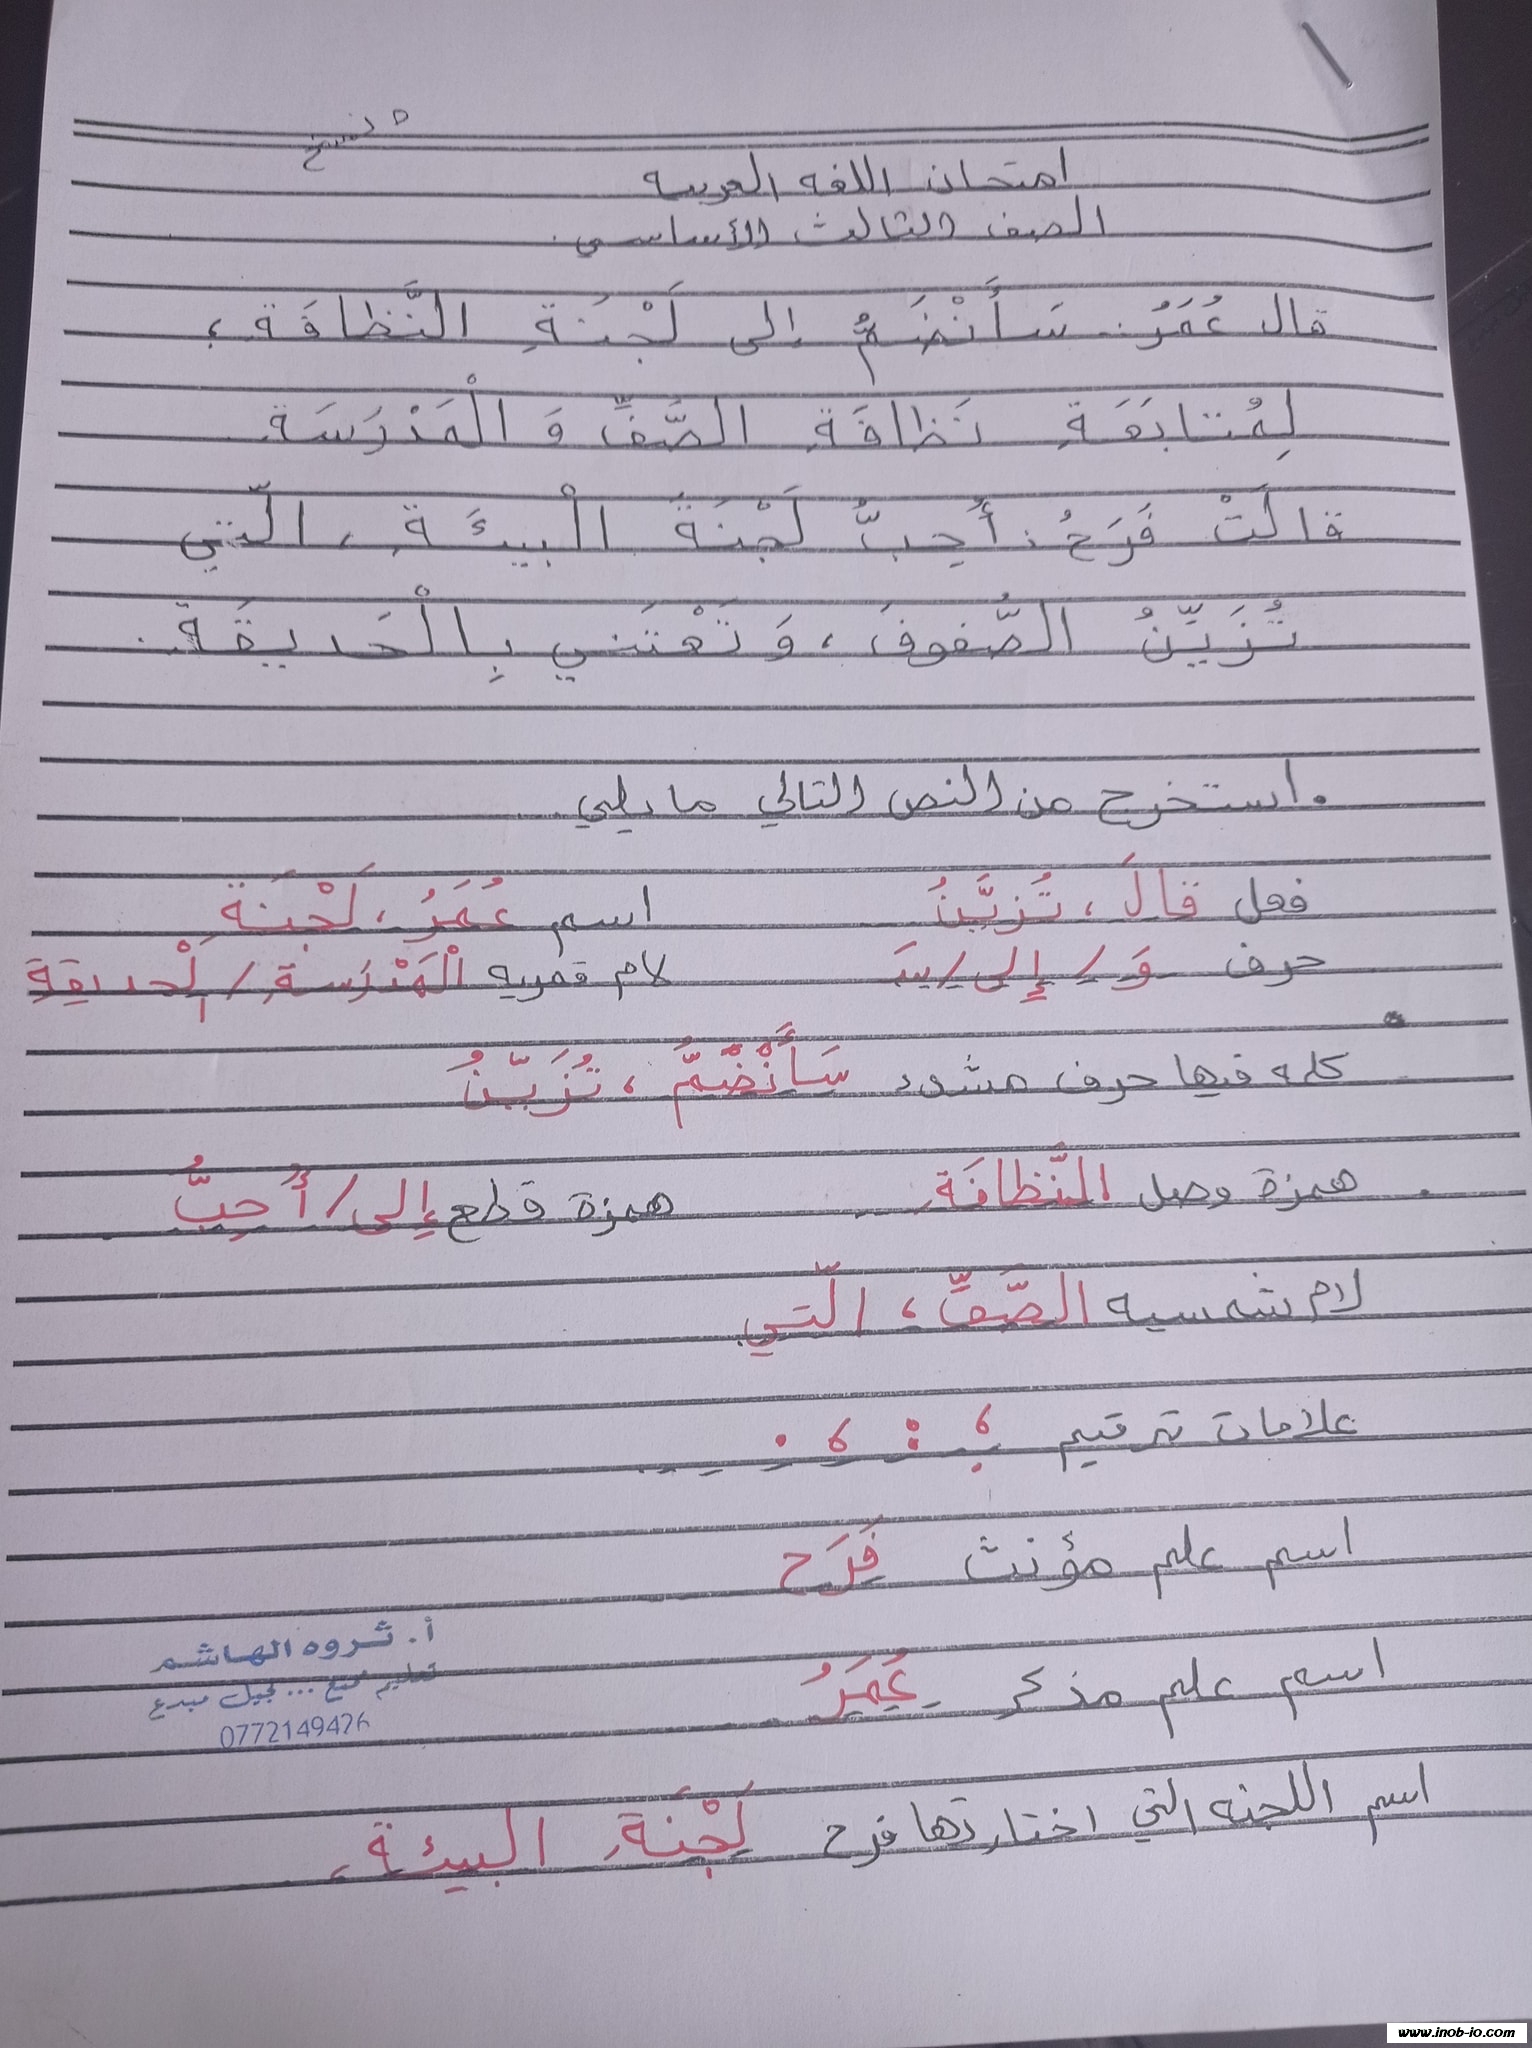 ٥ نسخ
امتحان اللغه العربيه
الصف الثالث الأساسي.
قال عُمَرُ: سَأَنْضَمُّ إلى لَجْنَةِ النَّظافَةِ،
لِمُتابَعَةِ نَظافَةِ الصَّفِّ وَ الْمَدْرَسَةِ.
قالَتْ فَرَحُ: أُحِبُّ لَجْنَةَ الْبيئَةِ، الّتي
تُزَيِّنُ الصُّفوفَ، وَتَعْتَني بِالْحَديقَةِ.
. استخرج من النص التالي ما يلي
فعل قالَ، تُزيَّنُ اسم عُمَرُ، لَجْنَةِ
حرف وَ / إِلى / سَ لام قمريه الْمَدْرَسةِ / الْحديقِةِ
كلمه فيها حرف مشدد سَأَنْضَمُّ، تُزَيّنُ
. همزة وصل النّظافَةِ همزة قطع إلى / أُحِبُّ
لام شمسيه الصَّفِّ، الّتي
علامات ترقيم ؛ : ، .
اسم علم مؤنث فَرَح
أ. ثروه الهاشم
اسم علم مذكر عُمَرُ
تعليم ممتع ... لجيل مبدع
0772149426
اسم اللجنه التي اختارتها فرح لَجْنَةِ البيئة
www.inob-io.com